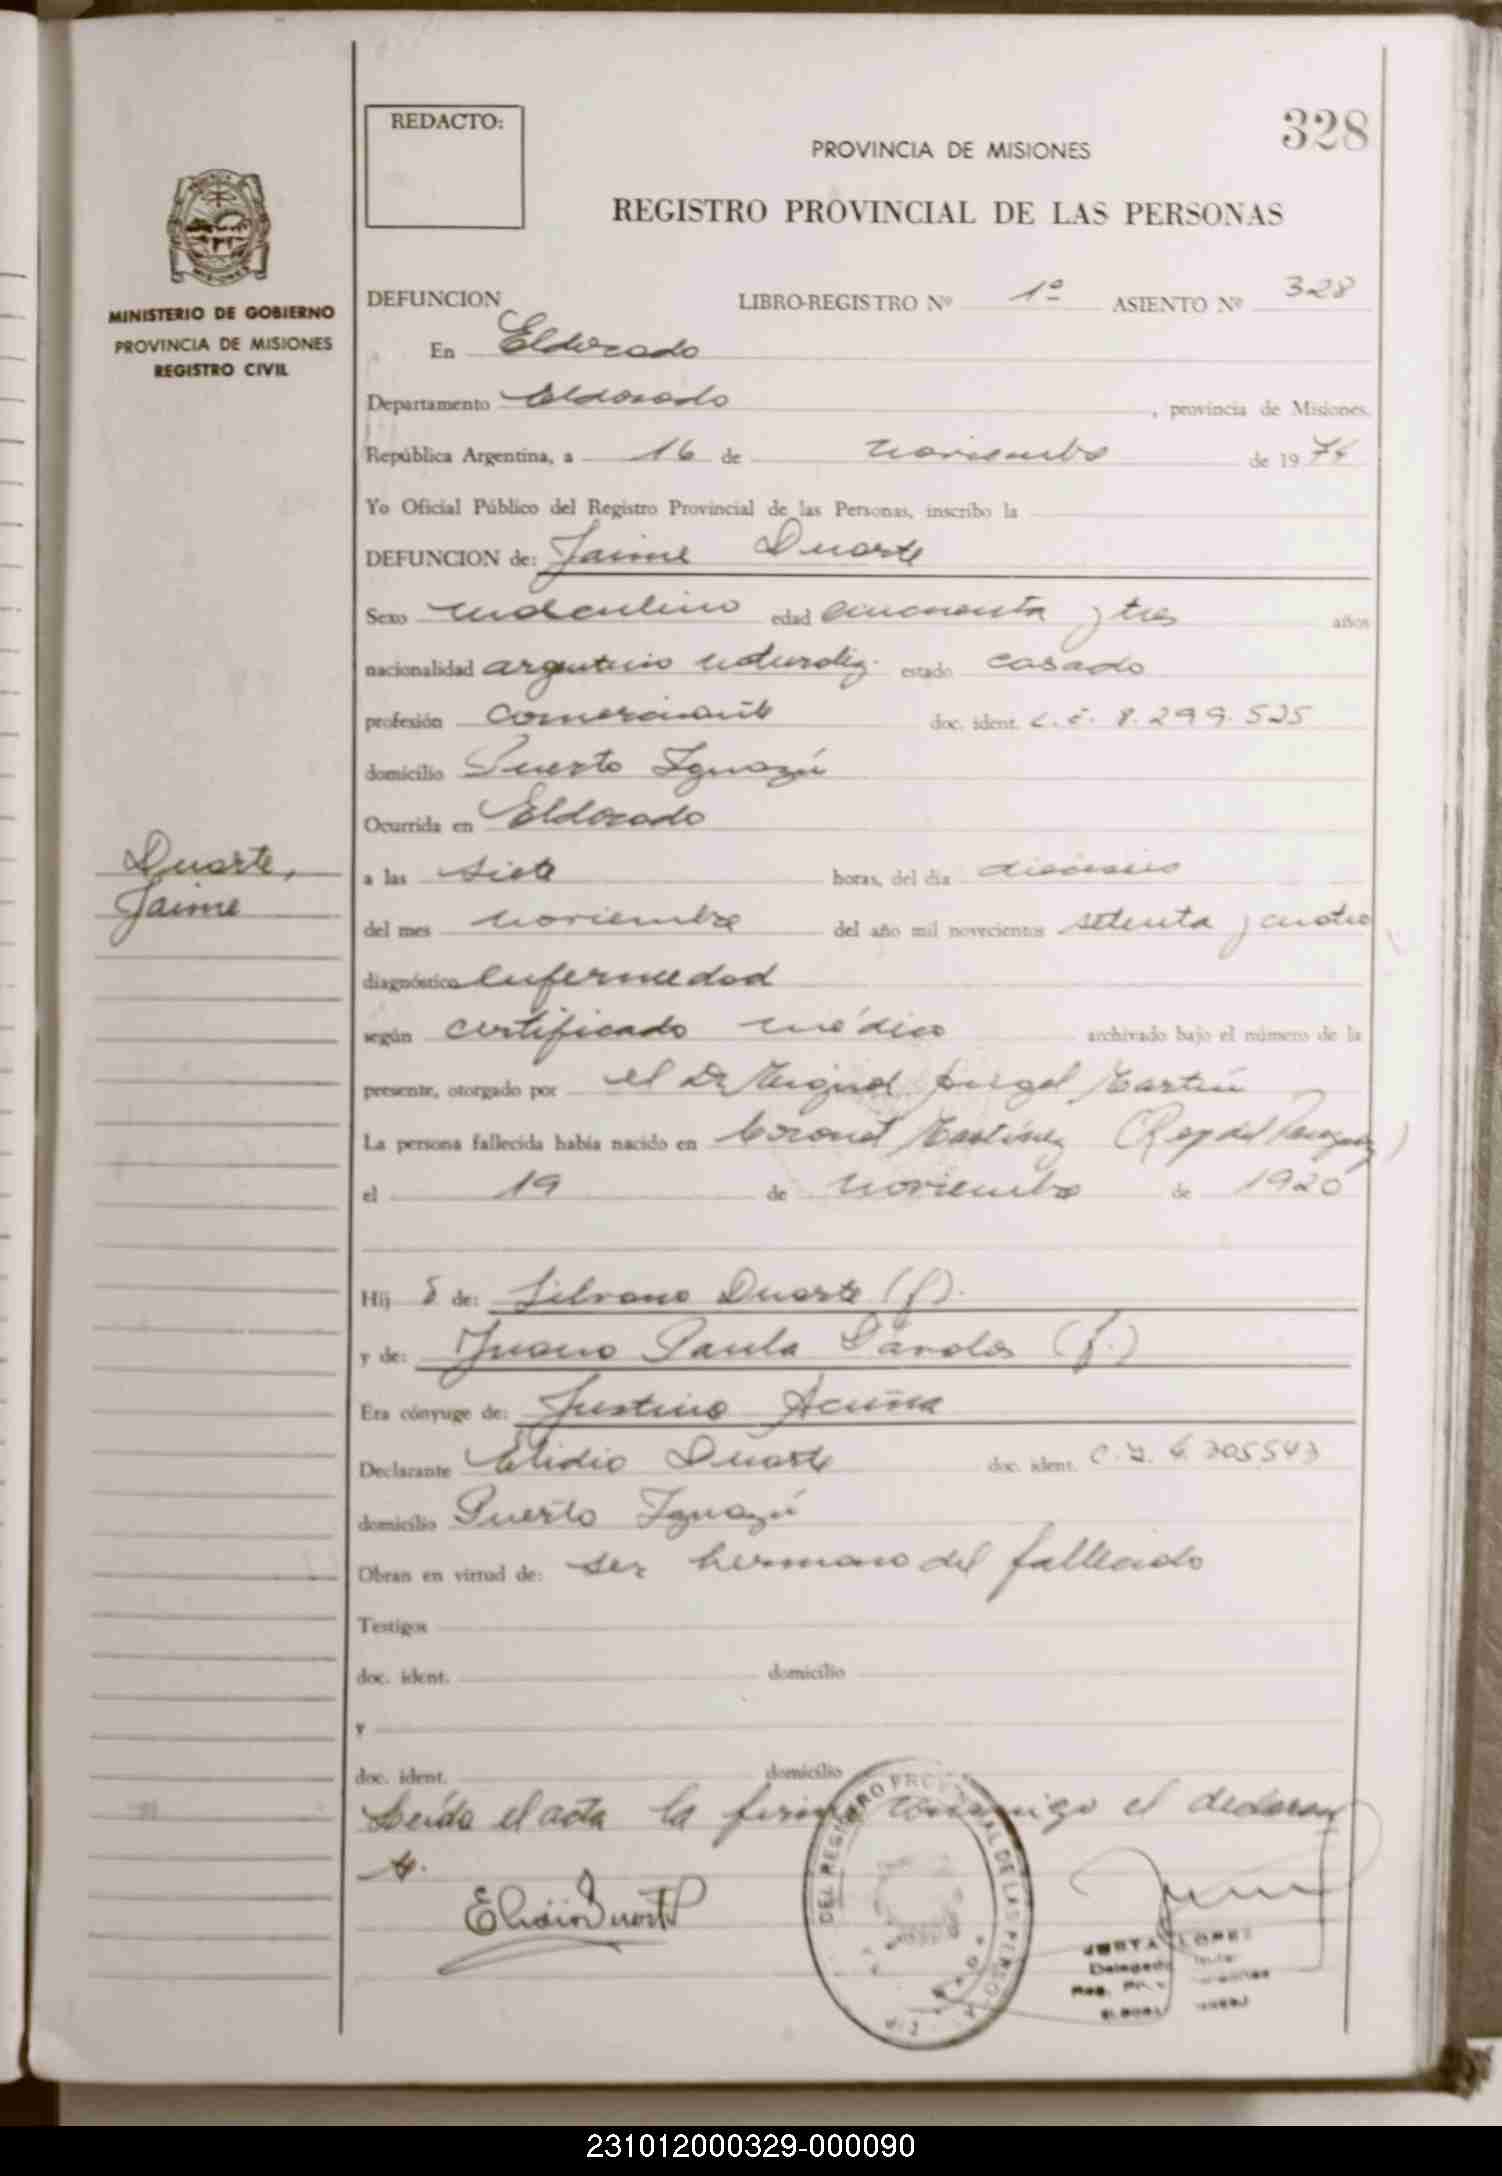 328
REDACTO:
PROVINCIA DE MISIONES
REGISTRO PROVINCIAL DE LAS PERSONAS
MINISTERIO DE GOBIERNO
PROVINCIA DE MISIONES
REGISTRO CIVIL
DEFUNCION LIBRO-REGISTRO Nº 1º ASIENTO Nº 328
En Eldorado
Departamento Eldorado, provincia de Misiones.
República Argentina, a 16 de noviembre de 1974
Yo Oficial Público del Registro Provincial de las Personas, inscribo la
DEFUNCION de: Jaime Duarte
Sexo masculino edad cincuenta y tres años
nacionalidad argentino naturaliz. estado casado
profesión comerciante doc. ident. L.E. 8.299.525
domicilio Puerto Iguazú
Ocurrida en Eldorado
Duarte,
Jaime
a las siete horas, del día dieciseis
del mes noviembre del año mil novecientos setenta y cuatro
diagnóstico enfermedad
según certificado médico archivado bajo el número de la
presente, otorgado por el Dr Miguel Angel Martín
La persona fallecida había nacido en Coronel Martínez (Rep del Paraguay)
el 19 de noviembre de 1920
Hij o de: Silvano Duarte (f).
y de: Juana Paula (f.)
Era cónyuge de: Justina Acuña
Declarante Elidio Duarte doc. ident. C.I. 305543
domicilio Puerto Iguazú
Obran en virtud de: ser hermano del fallecido
Testigos
doc. ident. domicilio
y
doc. ident. domicilio
Leída el acta la firma conmigo el declaran
te.
Elidio Duarte
DEL REGISTRO PROVINCIAL DE LAS PERSONAS
LOPEZ
231012000329-000090